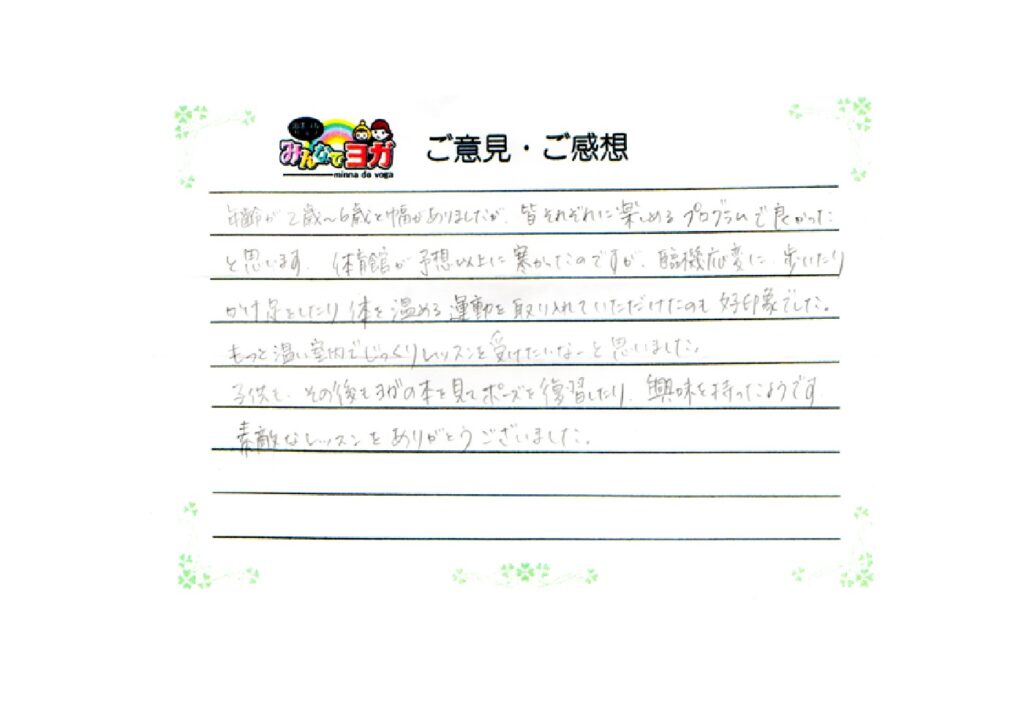 みんなでヨガ
minna de yoga
ご意見・ご感想
年齢が2歳〜6歳と幅がありましたが、皆それぞれに楽しめるプログラムで良かった
と思います。体育館が予想以上に寒かったのですが、臨機応変に、歩いたり
かけ足をしたり体を温める運動を取り入れていただけたのも好印象でした。
もっと温い室内でじっくりレッスンを受けたいなーと思いました。
子供も、その後もヨガの本を見てポーズを復習したり、興味を持ったようです。
素敵なレッスンをありがとうございました。